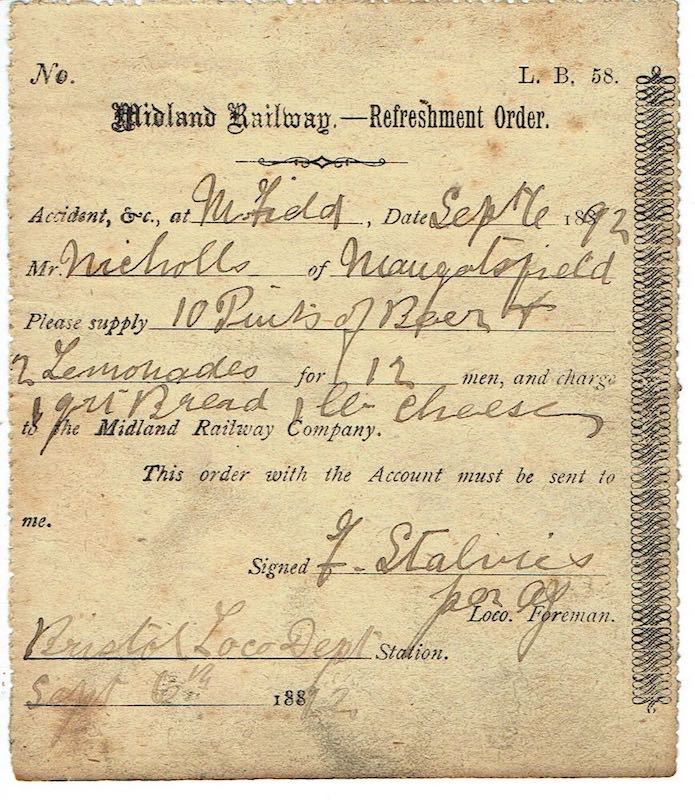 No. L. B. 58.
Midland Railway.—Refreshment Order.
Accident, &c., at M.Field, Date Sept 6 1892
Mr. Nicholls of Mangotsfield
Please supply 10 Pints of Beer +
2 Lemonades for 12 men, and charge
1 qrt Bread 1 lb cheese
to the Midland Railway Company.
This order with the Account must be sent to
me.
Signed F. Stalvies
per
Loco. Foreman.
Bristol Loco Dept Station.
Sept 6th 1892